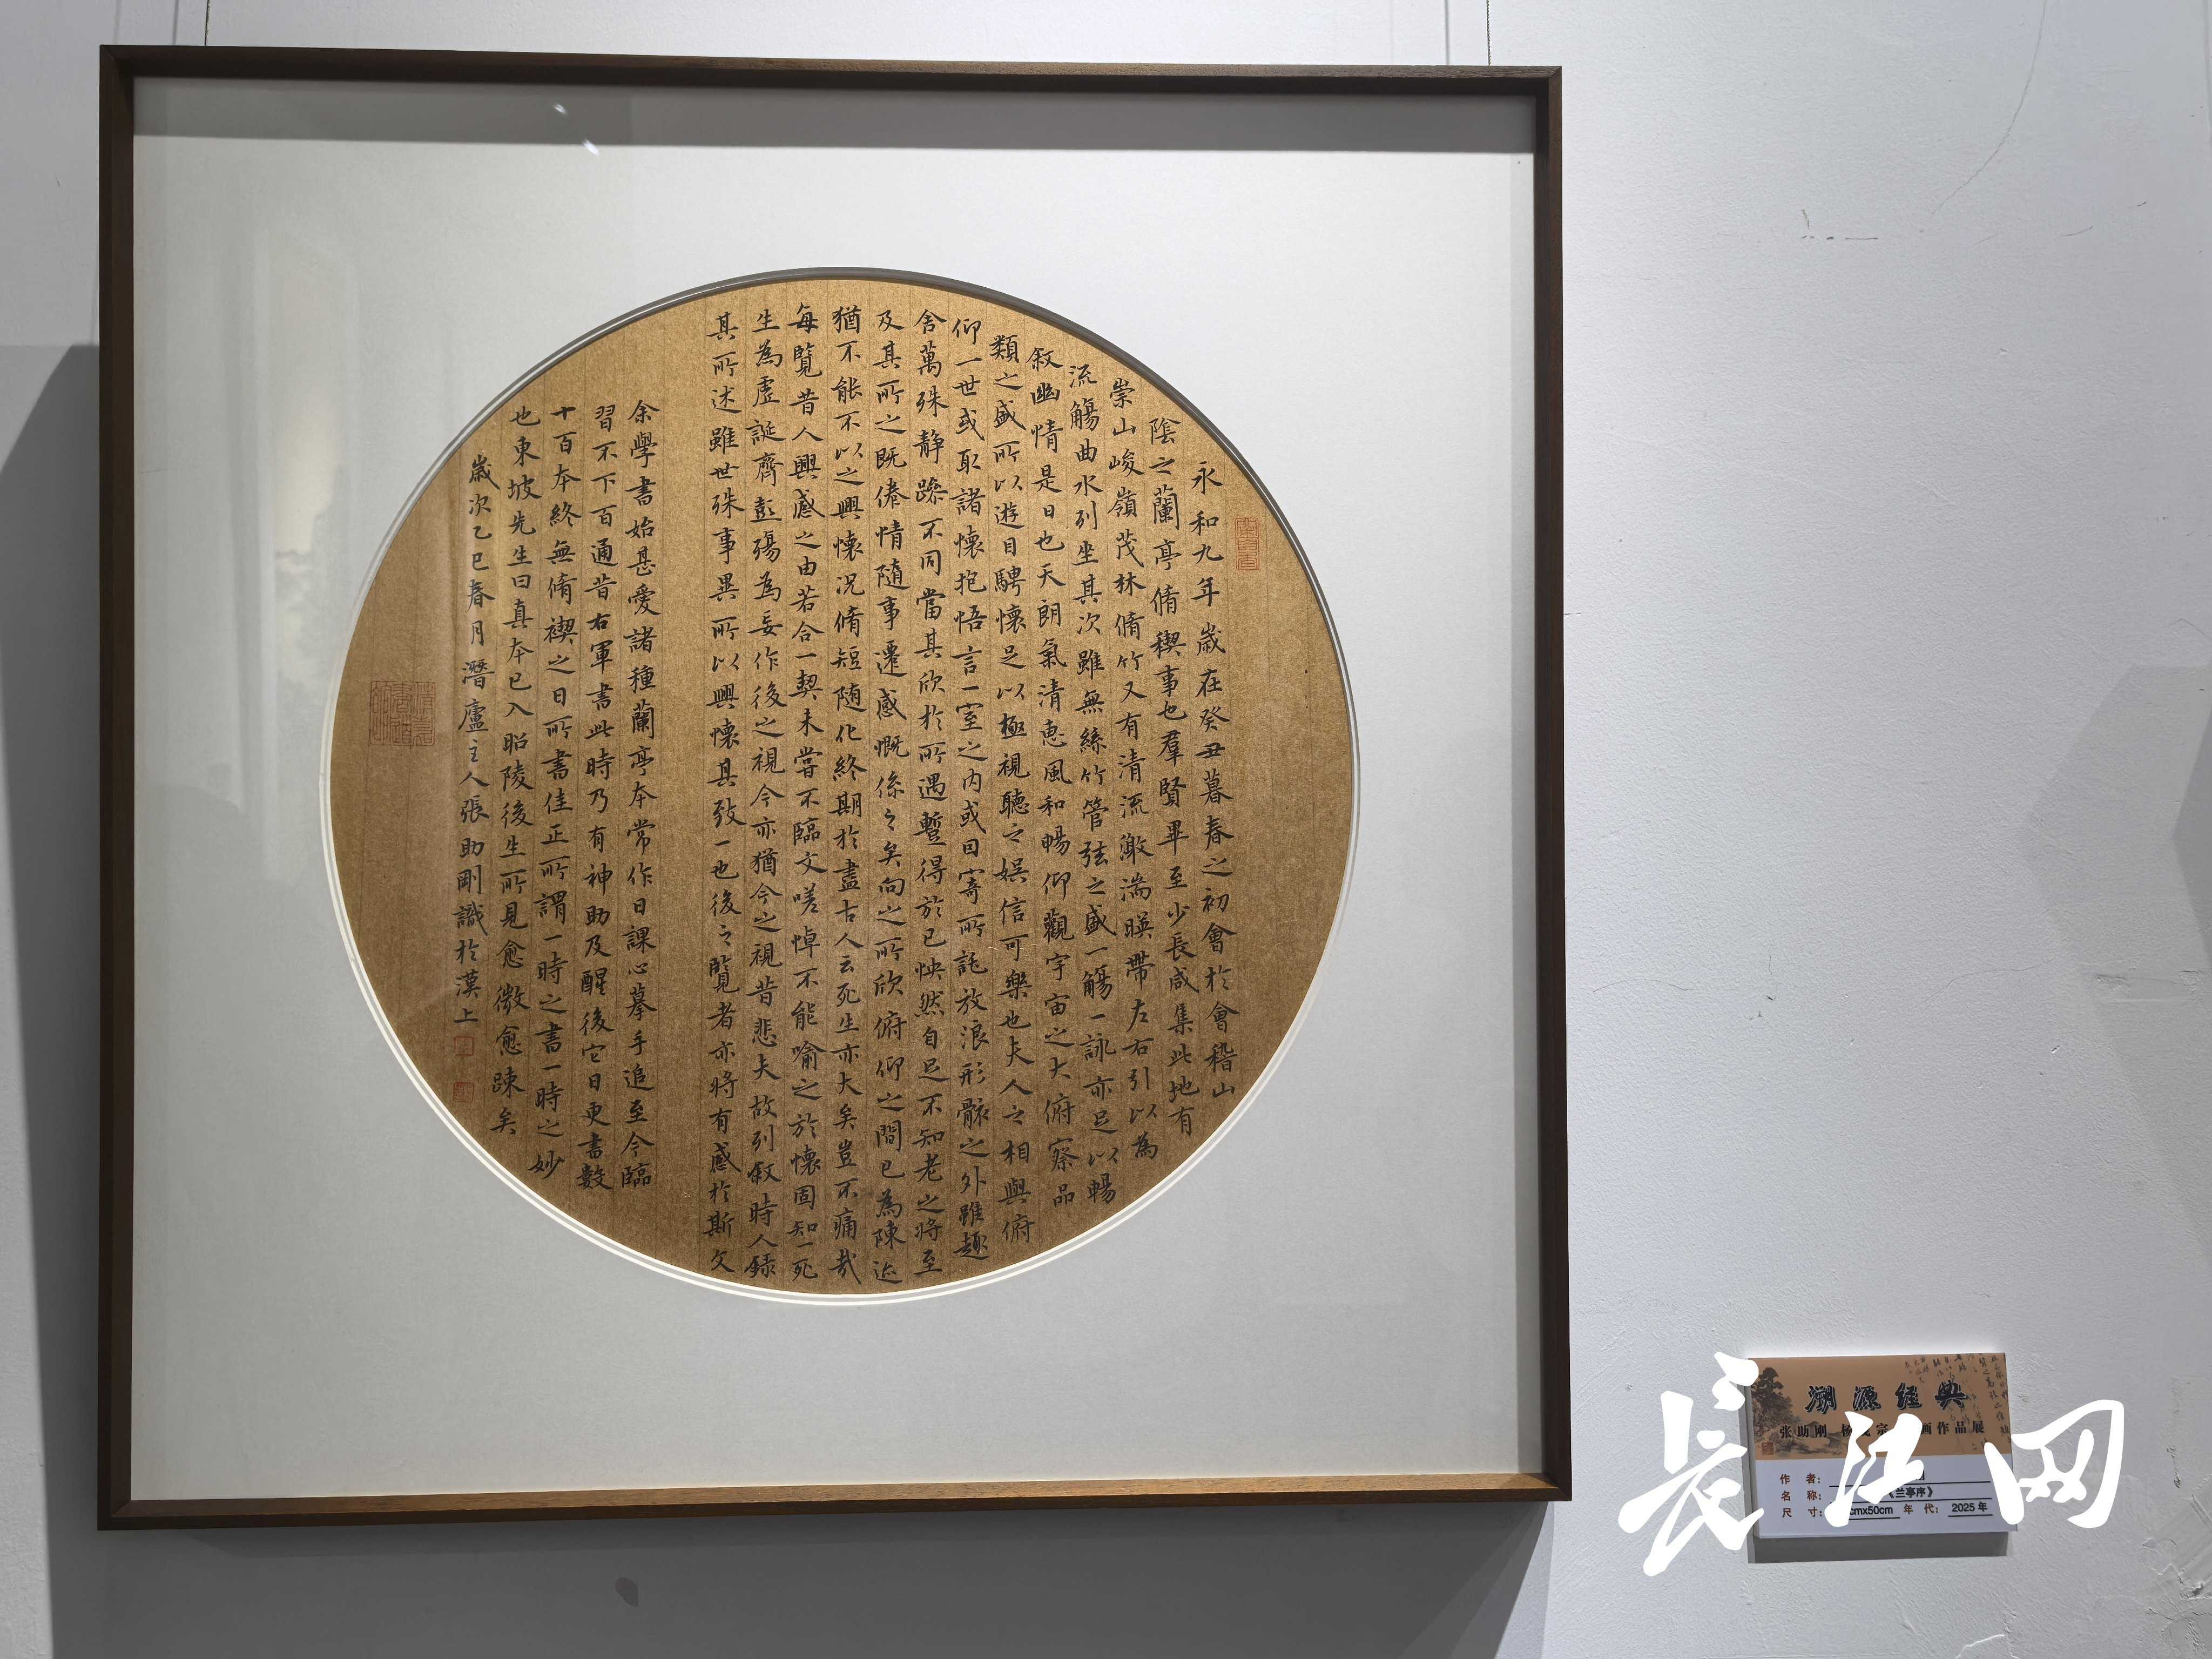 永和九年歲在癸丑暮春之初會於會稽山
陰之蘭亭脩稧事也羣賢畢至少長咸集此地有
崇山峻嶺茂林脩竹又有清流激湍暎帶左右引以為
流觴曲水列坐其次雖無絲竹管弦之盛一觴一詠亦足以暢
敘幽情是日也天朗氣清惠風和暢仰觀宇宙之大俯察品
類之盛所以遊目騁懷足以極視聽之娛信可樂也夫人之相與俯
仰一世或取諸懷抱悟言一室之內或因寄所託放浪形骸之外雖趣
舍萬殊靜躁不同當其欣於所遇蹔得於己怏然自足不知老之將至
及其所之既倦情隨事遷感慨係之矣向之所欣俯仰之間已為陳迹
猶不能不以之興懷況脩短隨化終期於盡古人云死生亦大矣豈不痛哉
每覽昔人興感之由若合一契未嘗不臨文嗟悼不能喻之於懷固知一死
生為虛誕齊彭殤為妄作後之視今亦猶今之視昔悲夫故列敘時人錄
其所述雖世殊事異所以興懷其致一也後之覽者亦將有感於斯文
余學書始甚愛諸種蘭亭本常作日課心摹手追至今臨
習不下百通昔右軍書此時乃有神助及醒後它日更書數
十百本終無脩禊之日所書佳正所謂一時之書一時之妙
也東坡先生曰真本已入昭陵後生所見愈微愈踈矣
歲次乙巳春月潛廬主人張助剛識於漢上
溯源经典
张助刚 杨 宗 画作品展
作 者：
名 称： 《兰亭序》
尺 寸： cmx50cm 年 代： 2025年
长江网